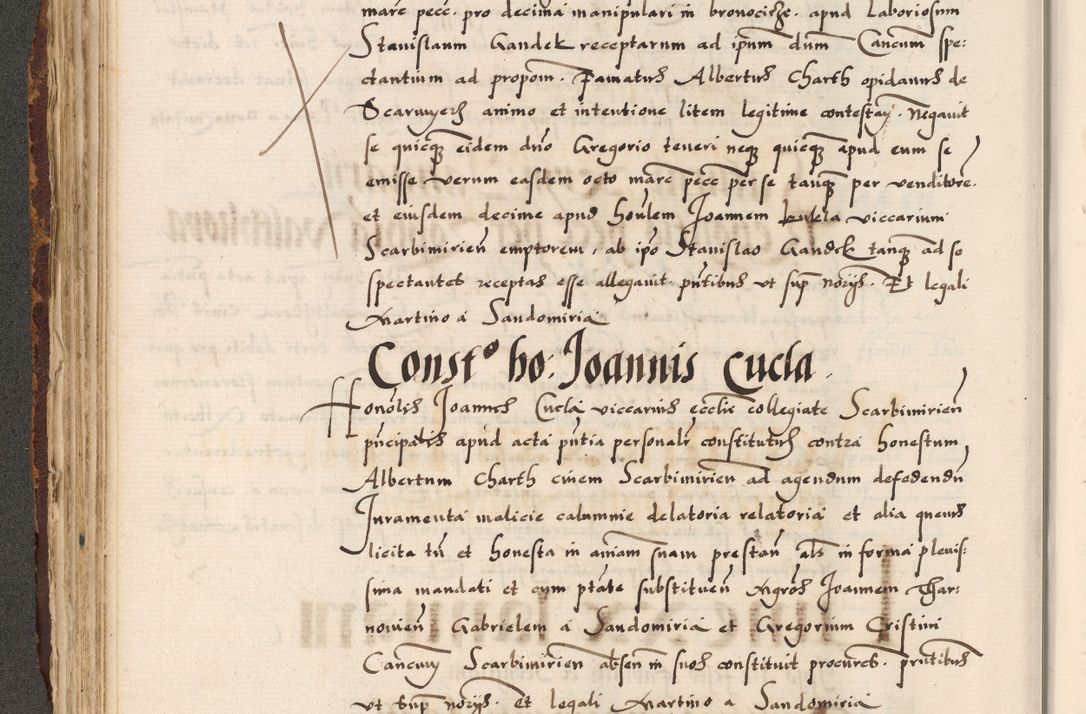 marc pecc. pro decima manipulari in bronocicze. apud Laboriosum
Stanislaum Gandek receptarum ad ipm dum Cancum spe:
ctantium ad propom. Famatus Albertus Charth opidanus de
animo et intentione litem legitime contestan. Negavit
se quicq eidem dno Gregorio teneri neq quicq apud eum se
emisse verum easdem octo marc pecc per se tanq per venditore.
et eiusdem decime apud honlem Joannem viccarium
Scarbimirien emptorem, ab ipo Stanislao Gandek tanq ad se
spectantes receptas esse allegavit. pntibus vt sup norijs. Et legali
Martino a Sandomiria
Const° ho: Joannis Cucla.
Honolis Joannes Cucla viccarius ecclie collegiate Scarbimirien
pncipalis apud acta pntia personalr constitutus contra honestum
Albertum Charth civem Scarbimirien ad agendum defedendu
Juramenta malicie calumnie delatoria relatoria et alia quevis
licita tn et honesta in aniam suam prestan als in forma plenis:
sima mandati et cum ptate substituen mgros Joannem Thar:
novien Gabrielem a Sandomiria et Gregorium Cristini
Cancuvy Scarbimirien absen in suos constituit procures. prntibus
vt sup norijs. Et legali Martino a Sandomiria